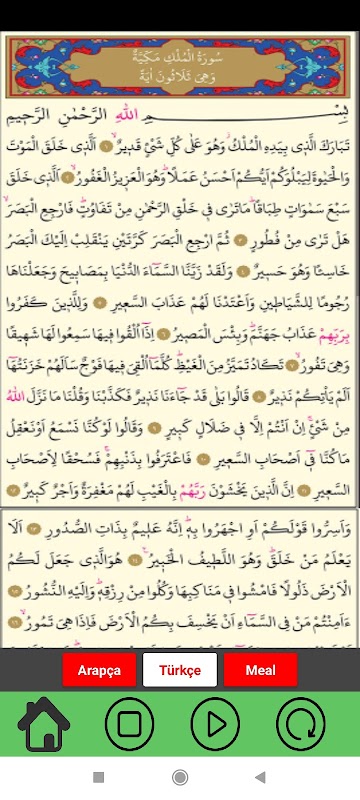 سُورَةُ الْمُلْكِ مَكِّيَّةٌ
وَهِىَ ثَلَاثُونَ اٰيَةً
بِسْمِ اللّٰهِ الرَّحْمٰنِ الرَّحٖيمِ
تَبَارَكَ الَّذٖى بِيَدِهِ الْمُلْكُۘ وَهُوَ عَلٰى كُلِّ شَیْءٍ قَدٖيرٌۙ ١ اَلَّذٖى خَلَقَ الْمَوْتَ
وَالْحَيٰوةَ لِيَبْلُوَكُمْ اَيُّكُمْ اَحْسَنُ عَمَلًاؕ وَهُوَ الْعَزٖيزُ الْغَفُورُۙ ٢ اَلَّذٖى خَلَقَ
سَبْعَ سَمٰوَاتٍ طِبَاقًاؕ مَا تَرٰى فٖى خَلْقِ الرَّحْمٰنِ مِنْ تَفَاوُتٍؕ فَارْجِعِ الْبَصَرَۙ
هَلْ تَرٰى مِنْ فُطُورٍ ٣ ثُمَّ ارْجِعِ الْبَصَرَ كَرَّتَيْنِ يَنْقَلِبْ اِلَيْكَ الْبَصَرُ
خَاسِئًا وَهُوَ حَسٖيرٌ ٤ وَلَقَدْ زَيَّنَّا السَّمَٓاءَ الدُّنْيَا بِمَصَابٖيحَ وَجَعَلْنَاهَا
رُجُومًا لِلشَّيَاطٖينِ وَاَعْتَدْنَا لَهُمْ عَذَابَ السَّعٖيرِ ٥ وَلِلَّذٖينَ كَفَرُوا
بِرَبِّهِمْ عَذَابُ جَهَنَّمَؕ وَبِئْسَ الْمَصٖيرُ ٦ اِذَٓا اُلْقُوا فٖيهَا سَمِعُوا لَهَا شَهٖيقًا
وَهِىَ تَفُورُۙ ٧ تَكَادُ تَمَيَّزُ مِنَ الْغَيْظِؕ كُلَّمَٓا اُلْقِىَ فٖيهَا فَوْجٌ سَاَلَهُمْ خَزَنَتُهَٓا
اَلَمْ يَاْتِكُمْ نَذٖيرٌ ٨ قَالُوا بَلٰى قَدْ جَٓاءَنَا نَذٖيرٌ فَكَذَّبْنَا وَقُلْنَا مَا نَزَّلَ اللّٰهُ
مِنْ شَیْءٍۚ اِنْ اَنْتُمْ اِلَّا فٖى ضَلَالٍ كَبٖيرٍ ٩ وَقَالُوا لَوْ كُنَّا نَسْمَعُ اَوْ نَعْقِلُ
مَا كُنَّا فٖٓى اَصْحَابِ السَّعٖيرِ ١٠ فَاعْتَرَفُوا بِذَنْبِهِمْۚ فَسُحْقًا لِاَصْحَابِ
السَّعٖيرِ ١١ اِنَّ الَّذٖينَ يَخْشَوْنَ رَبَّهُمْ بِالْغَيْبِ لَهُمْ مَغْفِرَةٌ وَاَجْرٌ كَبٖيرٌ ١٢
وَاَسِرُّوا قَوْلَكُمْ اَوِ اجْهَرُوا بِهٖؕ اِنَّهُ عَلٖيمٌ بِذَاتِ الصُّدُورِ ١٣ اَلَا
يَعْلَمُ مَنْ خَلَقَؕ وَهُوَ اللَّطٖيفُ الْخَبٖيرُ ١٤ هُوَ الَّذٖى جَعَلَ لَكُمُ
الْاَرْضَ ذَلُولًا فَامْشُوا فٖى مَنَاكِبِهَا وَكُلُوا مِنْ رِزْقِهٖؕ وَاِلَيْهِ النُّشُورُ ١٥
ءَاَمِنْتُمْ مَنْ فِى السَّمَٓاءِ اَنْ يَخْسِفَ بِكُمُ الْاَرْضَ فَاِذَا هِىَ تَمُورُۙ ١٦
Arapça Türkçe Meal